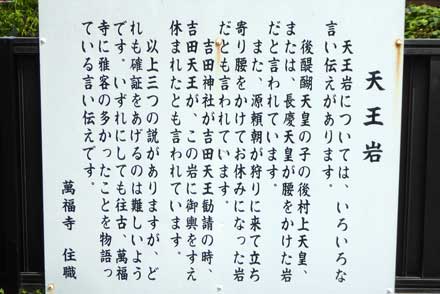 天王岩
天王岩については、いろいろな
言い伝えがあります。
後醍醐天皇の子の後村上天皇、
または、長慶天皇が腰をかけた岩
だと言われています。
また、源頼朝が狩りに来て立ち
寄り腰をかけてお休みになった岩
だとも言われています。
吉田神社が吉田天王勧請の時、
吉田天王が、この岩に御輿をすえ
休まれたとも言われています。
以上三つの説がありますが、ど
れも確証をあげるのは難しいよう
です。いずれにしても往古、萬福
寺に雅客の多かったことを物語っ
ている言い伝えです。
萬福寺 住職